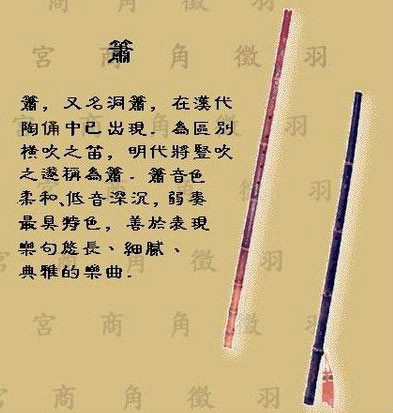 宮 商 角 徵 羽
簫
簫，又名洞簫，在漢代
陶俑中已出現．為區別
橫吹之笛，明代將豎吹
之邃稱為簫．簫音色
柔和、低音深沉，弱奏
最具特色，善於表現
樂句悠長、細膩、
典雅的樂曲．
宮 商 角 徵 羽
宮 商 角 徵 羽
宮 商 角 徵 羽
宮 商 角 徵 羽
宮 商 角 徵 羽